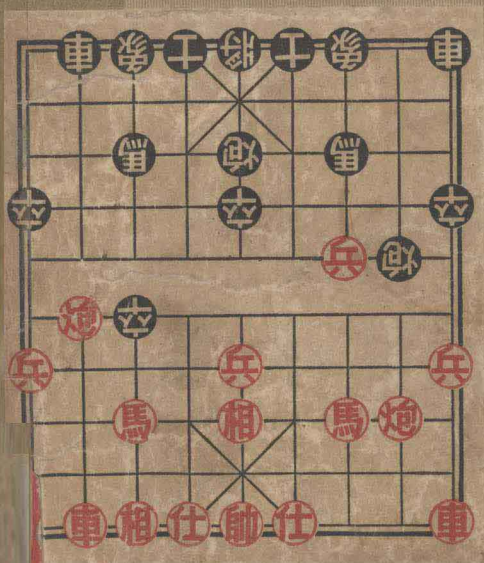 車象士將士象車
馬炮馬
卒卒卒
兵炮
炮卒
兵兵兵
馬相馬炮
車相仕帥仕車